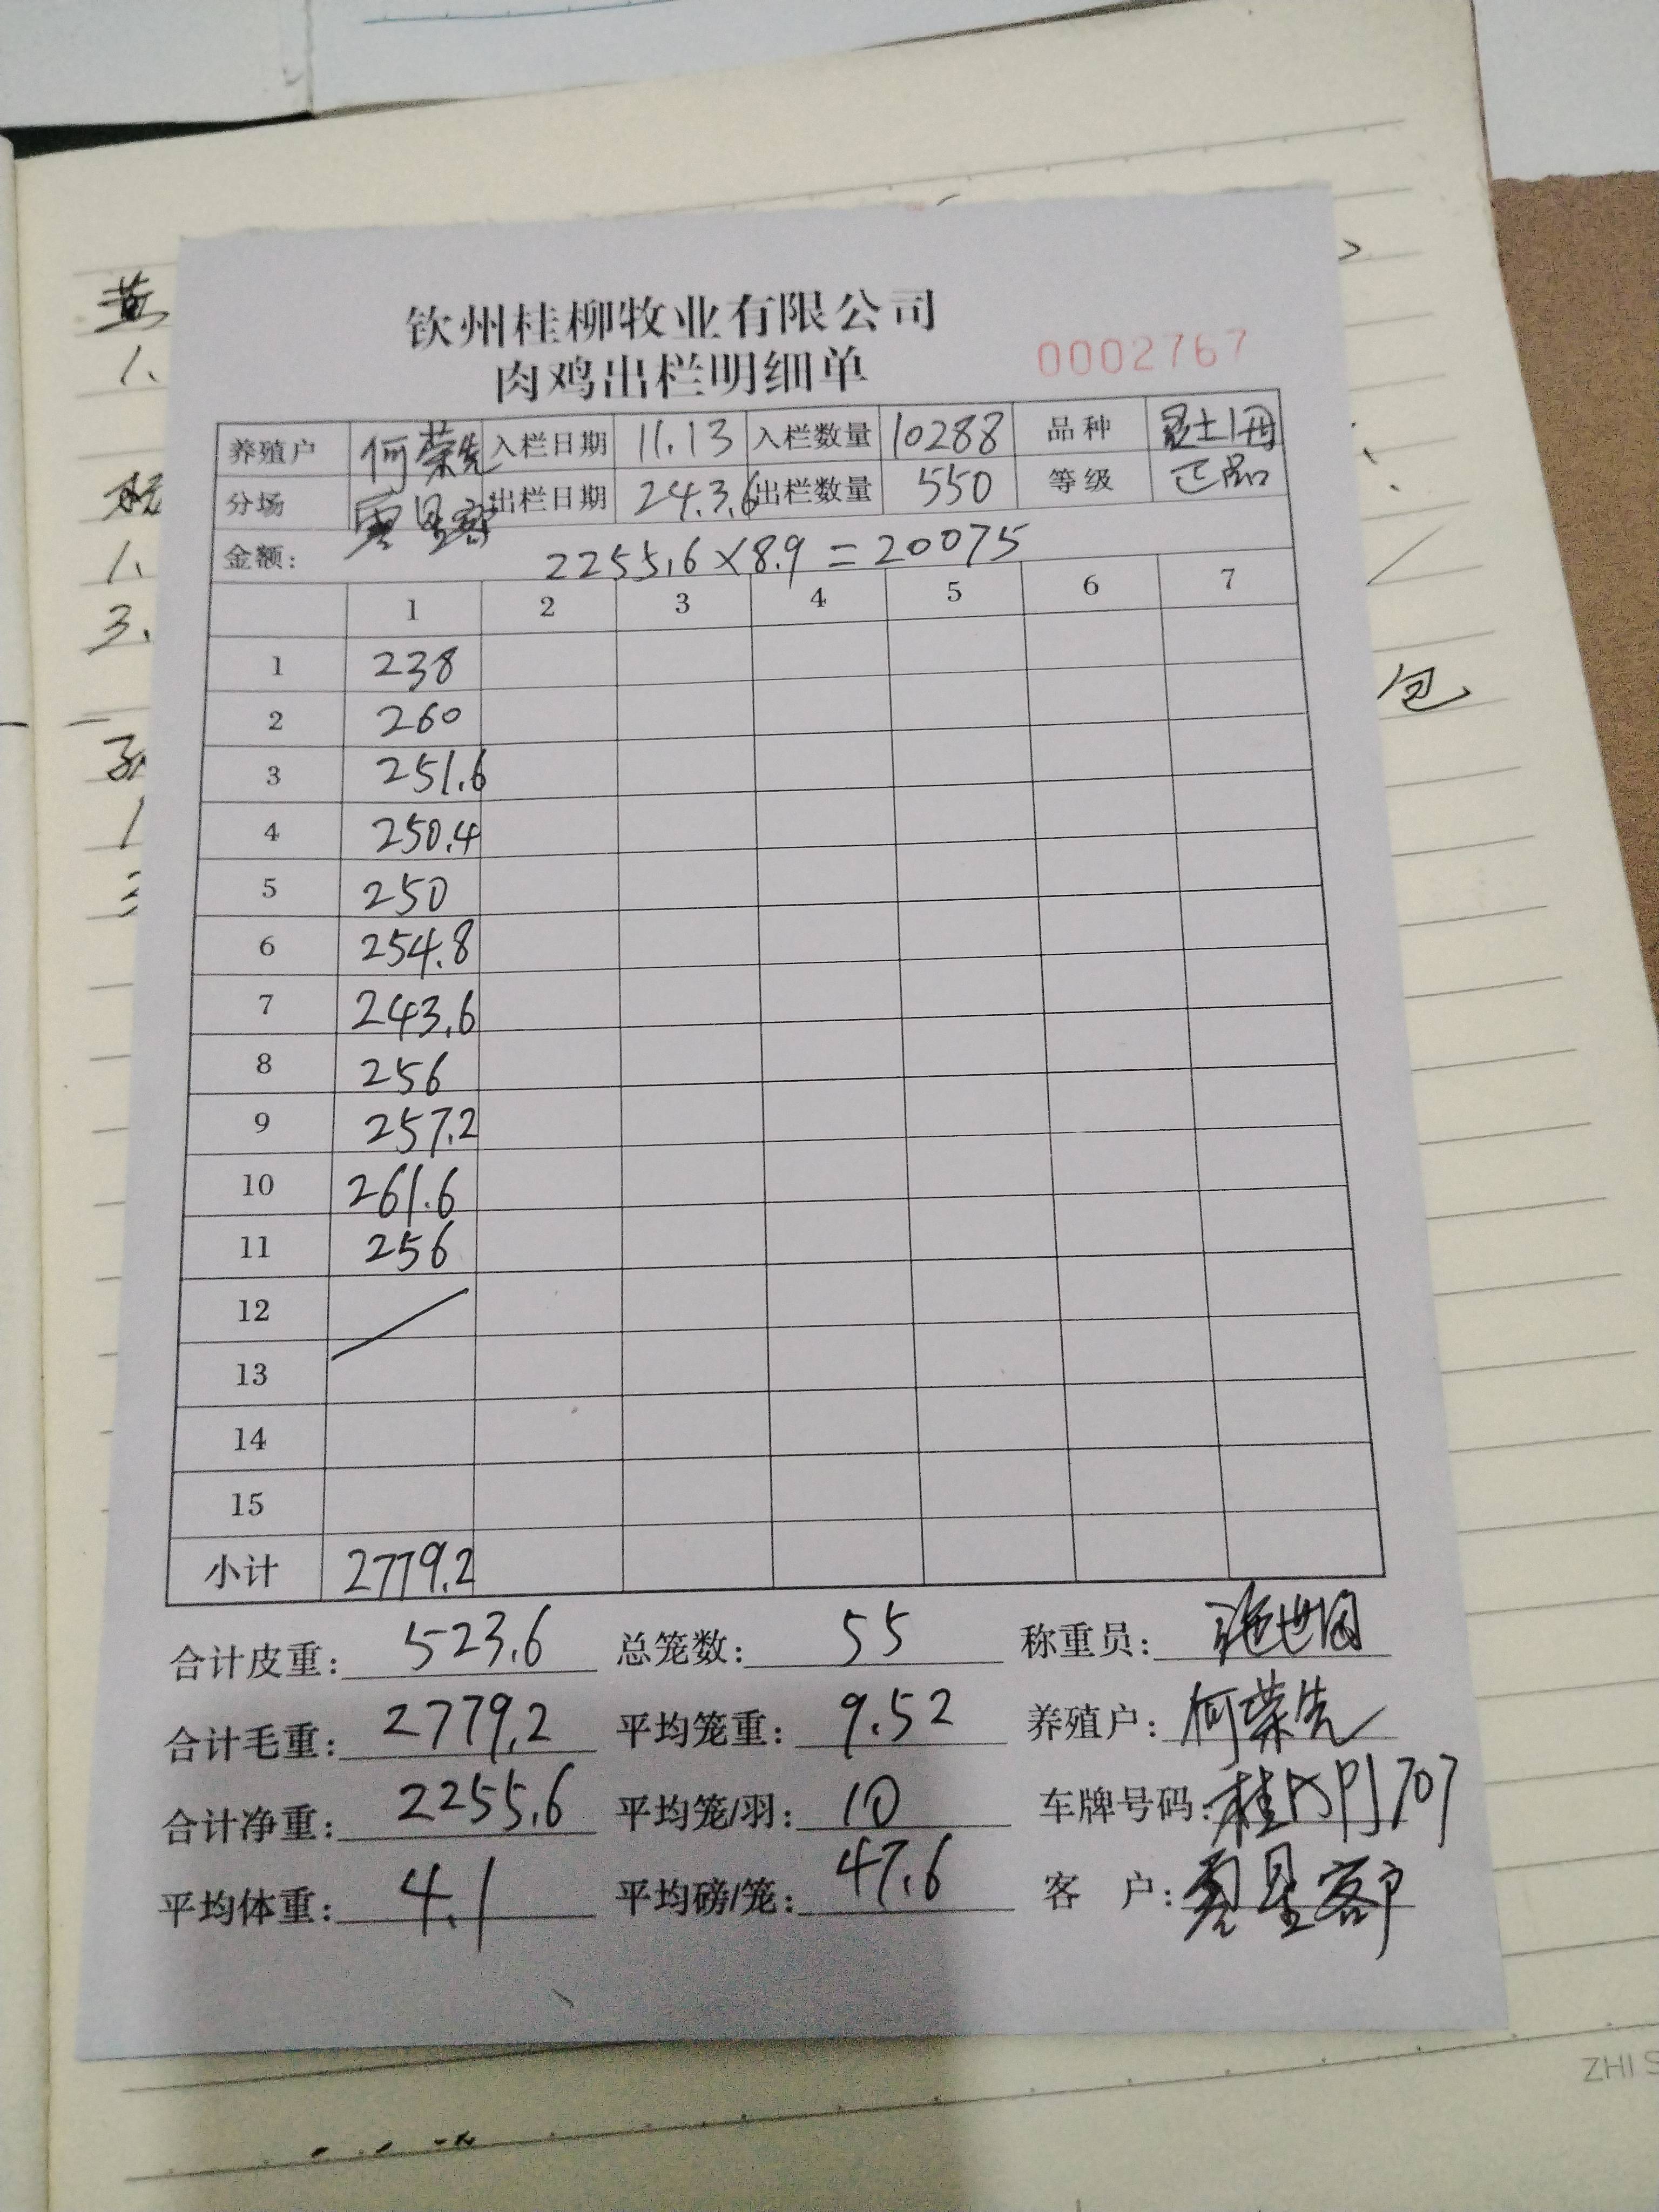 黄
1、
1、
3、
包
钦州桂柳牧业有限公司
肉鸡出栏明细单
0002767
养殖户 何荣先 入栏日期 11.13 入栏数量 10288 品种
分场 出栏日期 24.3.6 出栏数量 550 等级 正品
金额: 2255.6×8.9=20075
1 2 3 4 5 6 7
1 238
2 260
3 251.6
4 250.4
5 250
6 254.8
7 243.6
8 256
9 257.2
10 261.6
11 256
12
13
14
15
小计 2779.2
合计皮重: 523.6 总笼数: 55 称重员:
合计毛重: 2779.2 平均笼重: 9.52 养殖户: 何荣先
合计净重: 2255.6 平均笼/羽: 10 车牌号码:
平均体重: 4.1 平均磅/笼: 47.6 客 户:
ZHI S